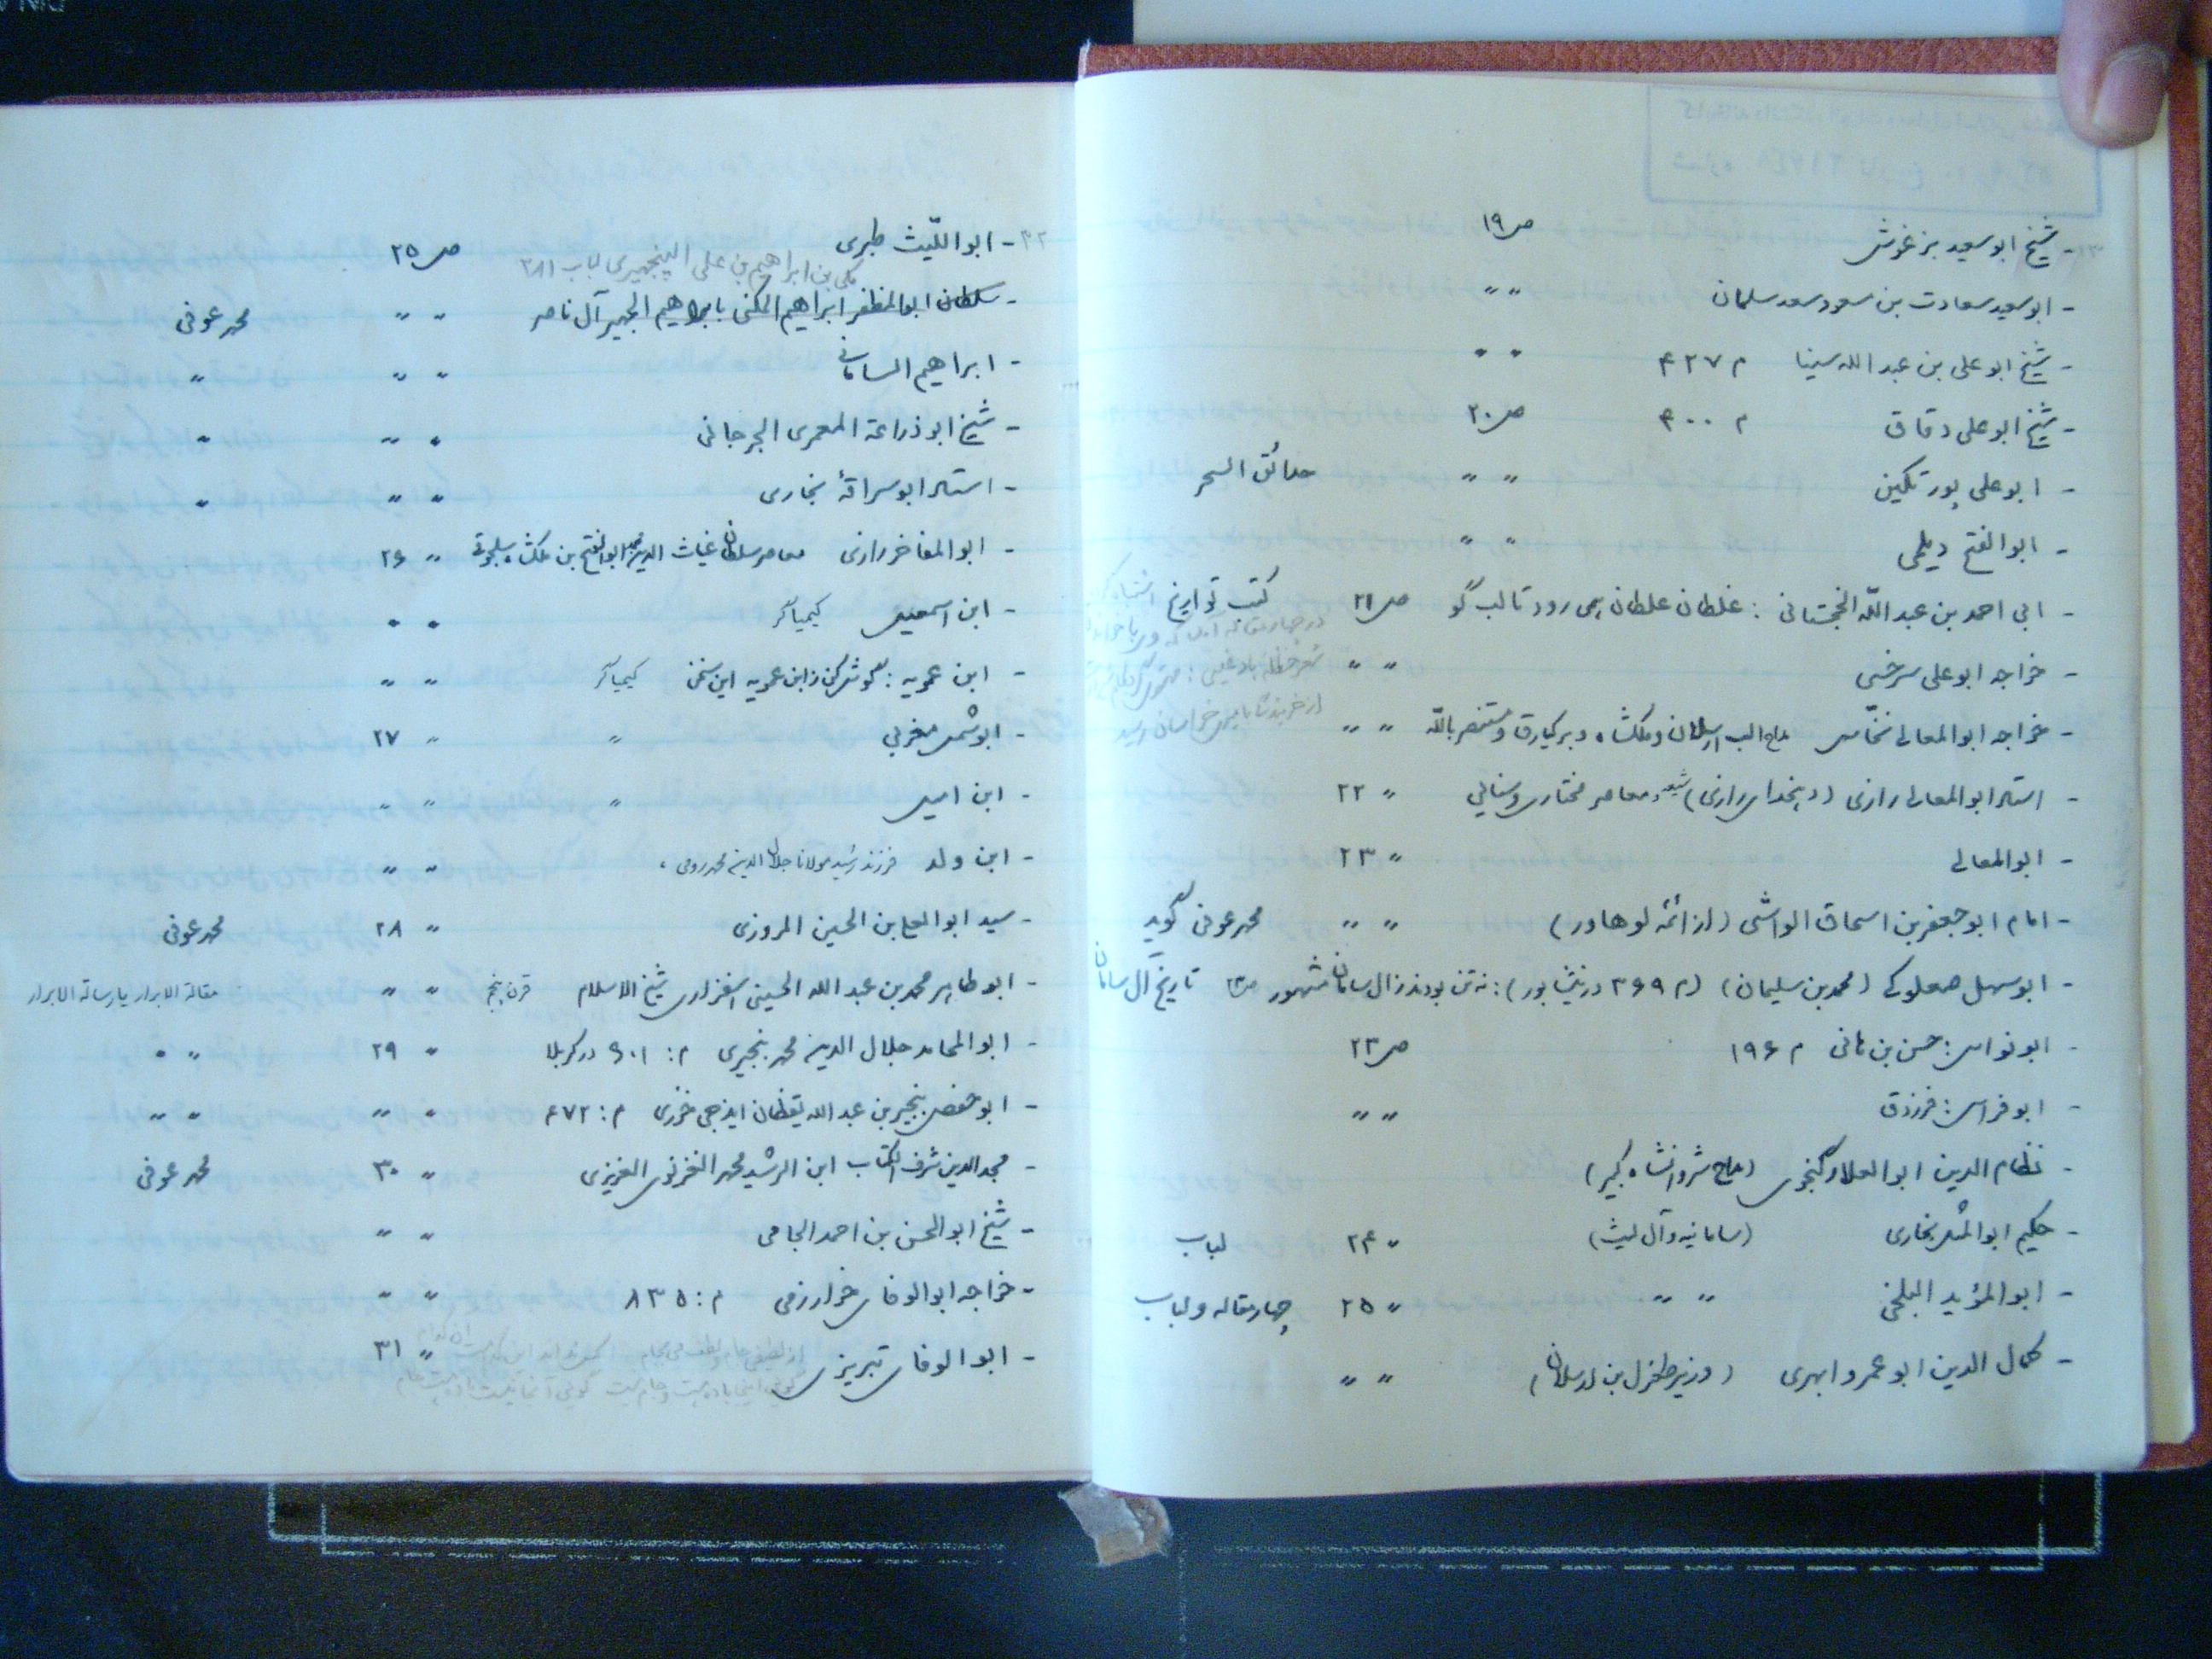 - شیخ ابوسعید بزغوش ص ۱۹
- ابوسعید سعادت بن مسعود سعد سلمان " "
- شیخ ابوعلی بن عبدالله سینا م ۴۲۷ " "
- شیخ ابوعلی دقاق م ۴۰۰ ص ۲۰
- ابوعلی پورتکین " " حدائق السحر
- ابوالفتح دیلمی " "
- ابی احمد بن عبداللّه الخجستانی : غلطان غلطان همی رود تا لب گو ص ۲۱ کتب تواریخ
در چهار مقاله
- خواجه ابوعلی سرخسی " "
- خواجه ابوالمعالی نحّاس مداح الب ارسلان و ملکشاه و برکیارق و مستنصر باللّه " "
- استاد ابوالمعالی رازی (دهخدای رازی) معاصر مختاری و سنائی " ۲۲
- ابوالمعالی " ۲۳
- امام ابوجعفر بن اسحاق الواشی (از ائمه لوهاور) " " محمد عوفی گوید
- ابوسهل صعلوکی (محمد بن سلیمان) (م ۳۶۹ در نیشابور) : نه تن بودند ز آل سامان مشهور ص ۲۳ تاریخ آل سامان
- ابونواس : حسن بن هانی م ۱۹۶ ص ۲۳
- ابوفراس : فرزدق " "
- نظام الدین ابوالعلاء گنجوی (مداح شروانشاه کبیر)
- حکیم ابوالمثل بخاری (سامانیه و آل لیث) " ۲۴ لباب
- ابوالمؤید البلخی " " " ۲۵ چهار مقاله و لباب
- کمال الدین ابوعمرو ابهری (وزیر طغرل بن ارسلان) " "
۴۲- ابواللّیث طبری ص ۲۵
مکی بن ابراهیم بن علی الپنجهیری لباب
- سلطان ابوالمظفر ابراهیم المکنی بابراهیم الجهیر آل ناصر " " محمد عوفی
- ابراهیم السامانی " " "
- شیخ ابوذراعة المعمری الجرجانی " " "
- استاد ابوسراقهٔ بخاری " " "
- ابوالمفاخر رازی معاصر سلطان غیاث الدین محمد ابوالفتح بن ملکشاه سلجوقی " ۲۶
- ابن اسمعیل کیمیاگر " "
- ابن عمویه : گوش کن ز ابن عمویه این سخن کیمیاگر " "
- ابوشمس مغربی " " ۲۷
- ابن امیل " " "
- ابن ولد فرزند رشید مولانا جلال الدین محمد رومی " "
- سید ابوالعلی بن الحسین المروزی " ۲۸ محمد عوفی
- ابوطاهر محمد بن عبدالله الحسینی اسفزاری شیخ الاسلام قرن پنجم " " مقالة الابرار یا رسالة الابرار
- ابوالمحامد جلال الدین محمد بنجیری م : ۶۰۱ در کربلا " ۲۹ " "
- ابوحفص بنجیر بن عبدالله یقظان ایذجی خزری م : ۴۷۲ " " " "
- مجدالدین شرف الکتاب ابن الرشید محمد الغزنوی العزیزی " ۳۰ محمد عوفی
- شیخ ابوالحسن بن احمد الجامی " "
- خواجه ابوالوفای خوارزمی م : ۸۳۵ " "
- ابوالوفای تبریزی " ۳۱